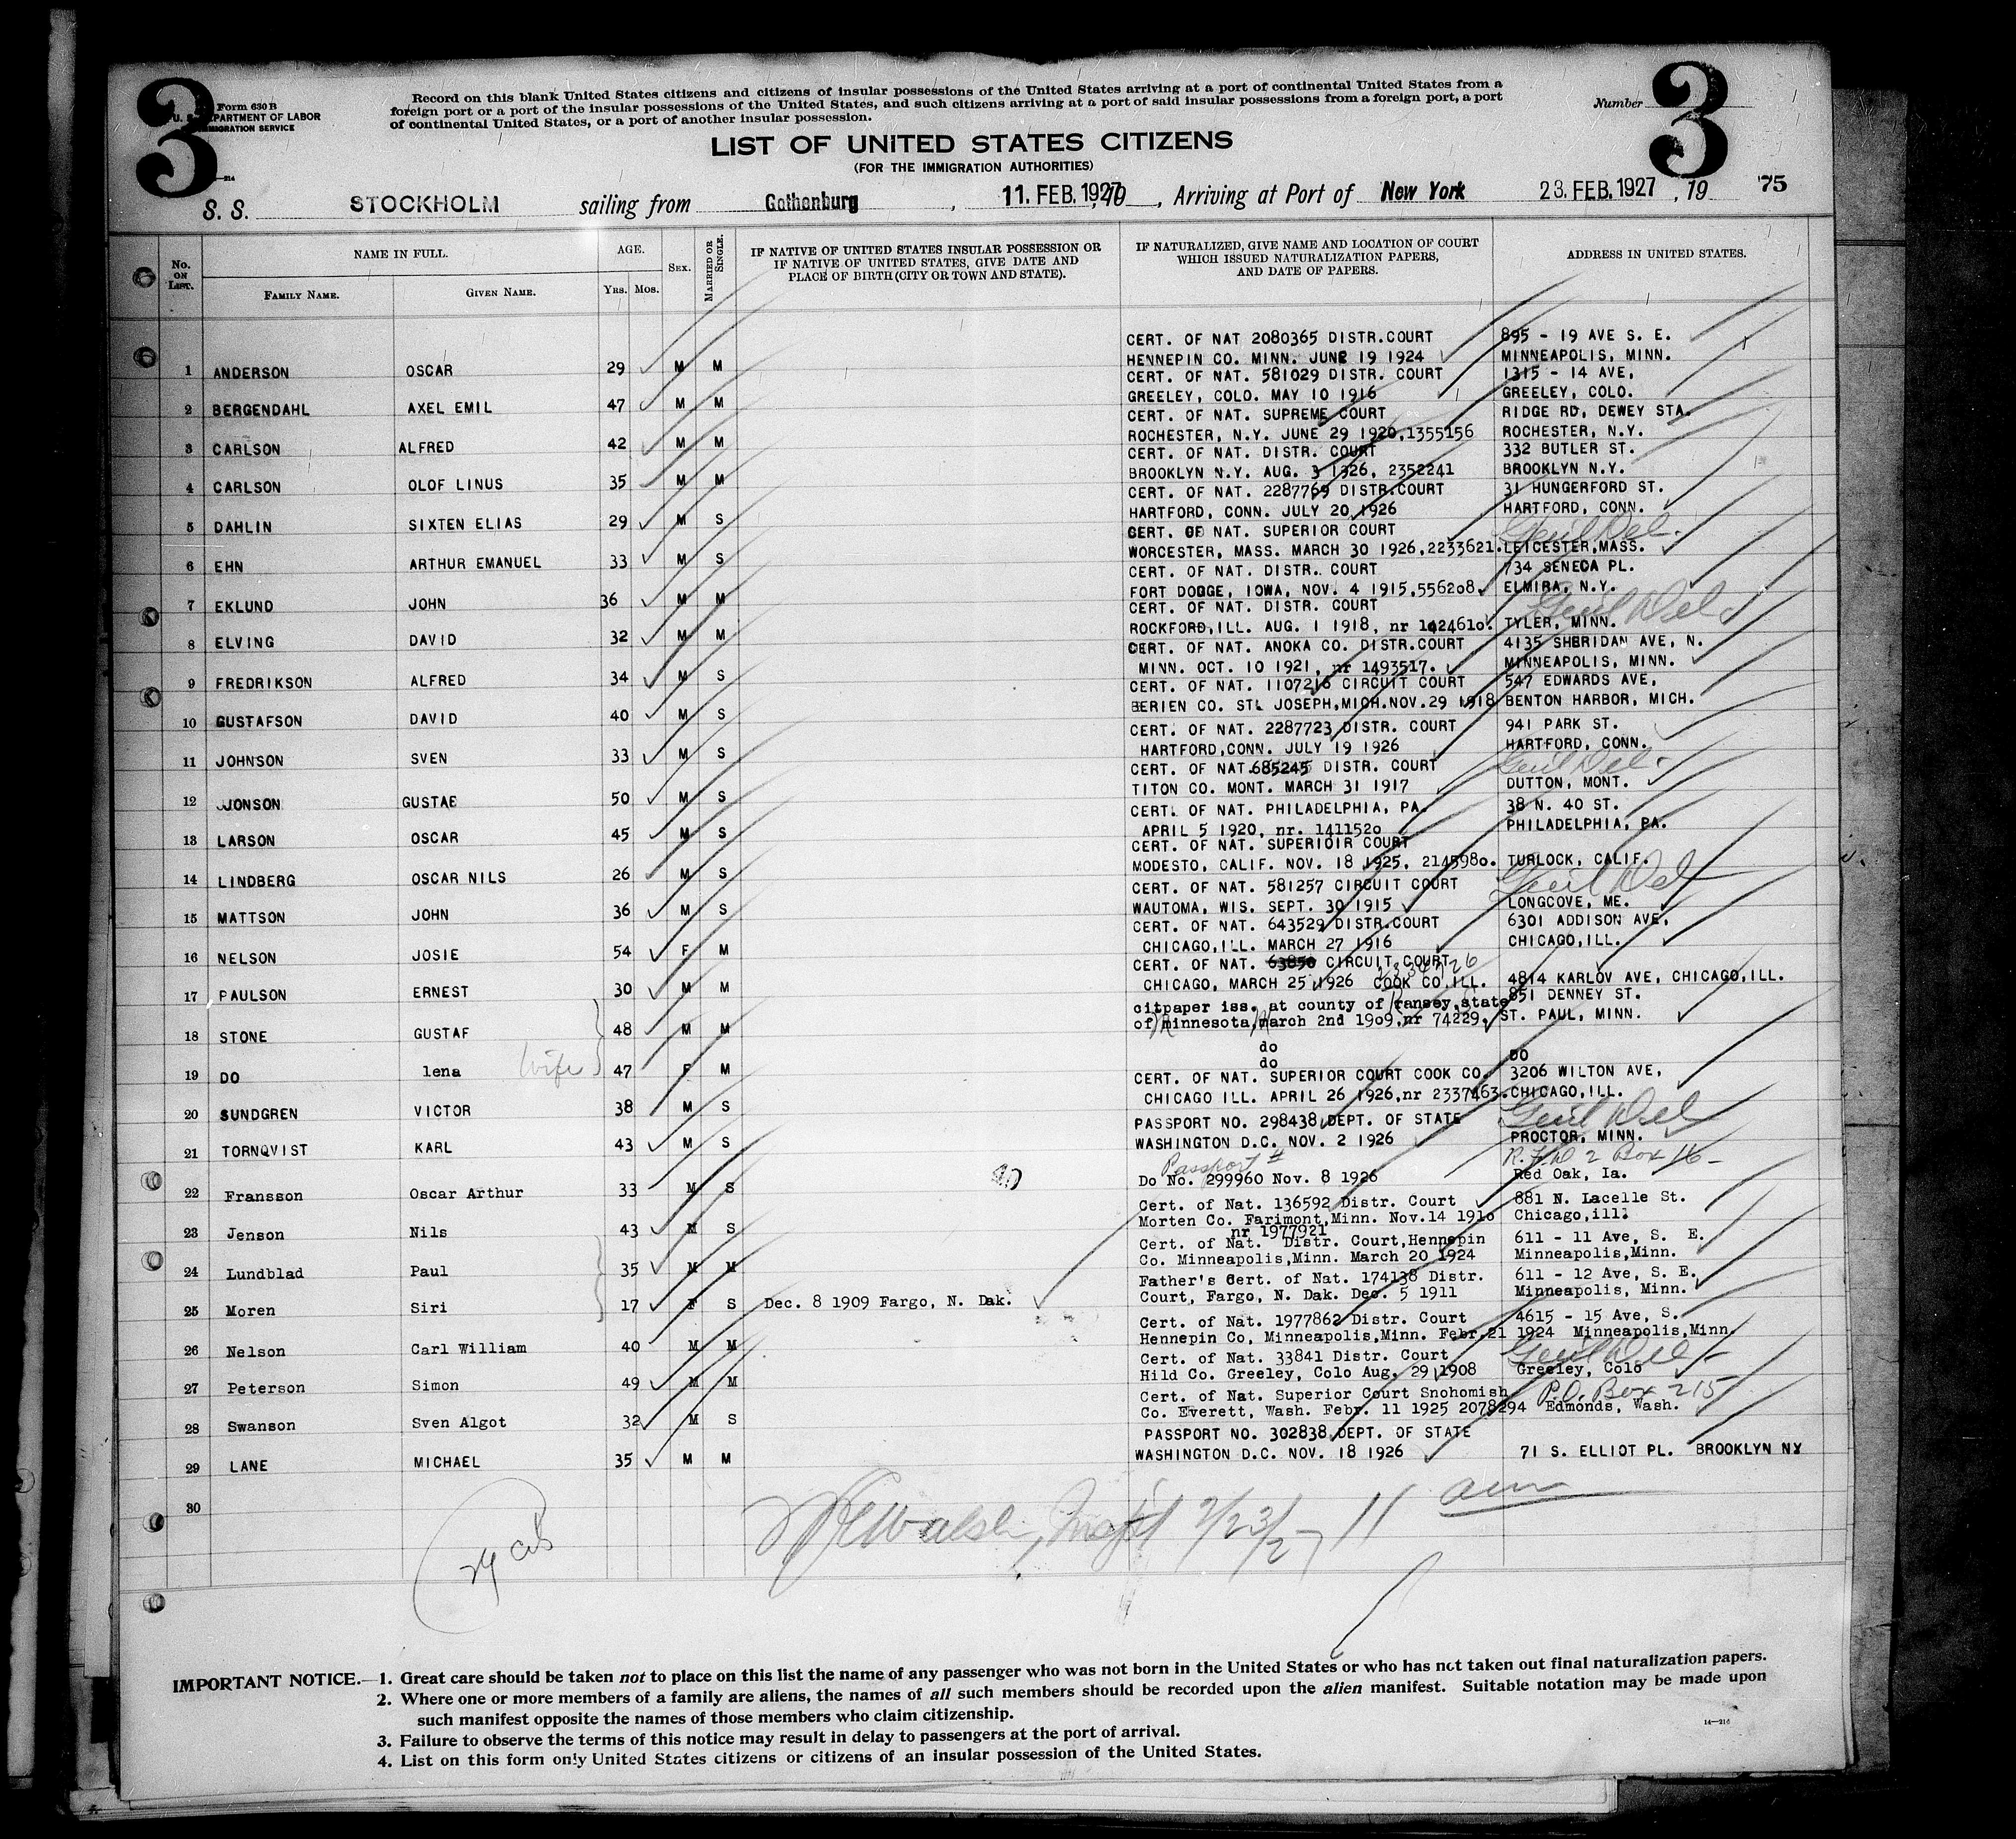 3
3
Form 630 B
U. S. DEPARTMENT OF LABOR
IMMIGRATION SERVICE
Number
Record on this blank United States citizens and citizens of insular possessions of the United States arriving at a port of continental United States from a
foreign port or a port of the insular possessions of the United States, and such citizens arriving at a port of said insular possessions from a foreign port, a port
of continental United States, or a port of another insular possession.
LIST OF UNITED STATES CITIZENS
(FOR THE IMMIGRATION AUTHORITIES)
S. S. STOCKHOLM sailing from Gothenburg, 11. FEB. 1927, 19, Arriving at Port of New York 23. FEB. 1927, 19 75
No. ON LIST. NAME IN FULL. AGE. SEX. MARRIED OR SINGLE. IF NATIVE OF UNITED STATES INSULAR POSSESSION OR IF NATIVE OF UNITED STATES, GIVE DATE AND PLACE OF BIRTH (CITY OR TOWN AND STATE). IF NATURALIZED, GIVE NAME AND LOCATION OF COURT WHICH ISSUED NATURALIZATION PAPERS, AND DATE OF PAPERS. ADDRESS IN UNITED STATES.
FAMILY NAME. GIVEN NAME. YRS. MOS.
CERT. OF NAT 2080365 DISTR.COURT 895 - 19 AVE S. E.
1 ANDERSON OSCAR 29 M M HENNEPIN CO. MINN. JUNE 19 1924 MINNEAPOLIS, MINN.
CERT. OF NAT. 581029 DISTR. COURT 1315 - 14 AVE,
2 BERGENDAHL AXEL EMIL 47 M M GREELEY, COLO. MAY 10 1916 GREELEY, COLO.
CERT. OF NAT. SUPREME COURT RIDGE RD, DEWEY STA.
3 CARLSON ALFRED 42 M M ROCHESTER, N.Y. JUNE 29 1920,1355156 ROCHESTER, N.Y.
CERT. OF NAT. DISTR. COURT 332 BUTLER ST.
4 CARLSON OLOF LINUS 35 M M BROOKLYN N.Y. AUG. 3 1926, 2352241 BROOKLYN N.Y.
CERT. OF NAT. 2287769 DISTR.COURT 31 HUNGERFORD ST.
5 DAHLIN SIXTEN ELIAS 29 M S HARTFORD, CONN. JULY 20 1926 HARTFORD, CONN.
CERT. OF NAT. SUPERIOR COURT Genl Del.
6 EHN ARTHUR EMANUEL 33 M S WORCESTER, MASS. MARCH 30 1926,2233621. LEICESTER,MASS.
CERT. OF NAT. DISTR. COURT 734 SENECA PL.
7 EKLUND JOHN 36 M M FORT DOGGE, IOWA, NOV. 4 1915,556208. ELMIRA, N.Y.
CERT. OF NAT. DISTR. COURT Genl Del
8 ELVING DAVID 32 M M ROCKFORD,ILL. AUG. 1 1918, nr 1024610. TYLER, MINN.
CERT. OF NAT. ANOKA CO. DISTR.COURT 4135 SHERIDAN AVE, N.
9 FREDRIKSON ALFRED 34 M S MINN. OCT. 10 1921, nr 1493517. MINNEAPOLIS, MINN.
CERT. OF NAT. 1107216 CIRCUIT COURT 547 EDWARDS AVE,
10 GUSTAFSON DAVID 40 M S BERIEN CO. ST. JOSEPH,MICH.NOV.29 1918 BENTON HARBOR, MICH.
CERT. OF NAT. 2287723 DISTR. COURT 941 PARK ST.
11 JOHNSON SVEN 33 M S HARTFORD,CONN. JULY 19 1926 HARTFORD, CONN.
CERT. OF NAT.685245 DISTR. COURT Genl Del.
12 JONSON GUSTAF 50 M S TITON CO. MONT. MARCH 31 1917 DUTTON, MONT.
CERT. OF NAT. PHILADELPHIA, PA. 38 N. 40 ST.
13 LARSON OSCAR 45 M S APRIL 5 1920, nr. 1411520 PHILADELPHIA, PA.
CERT. OF NAT. SUPERIOIR COURT
14 LINDBERG OSCAR NILS 26 M S MODESTO, CALIF. NOV. 18 1925, 2145980. TURLOCK, CALIF.
CERT. OF NAT. 581257 CIRCUIT COURT Genl Del
15 MATTSON JOHN 36 M S WAUTOMA, WIS. SEPT. 30 1915 LONGCOVE, ME.
CERT. OF NAT. 643529 DISTR.COURT 6301 ADDISON AVE,
16 NELSON JOSIE 54 F M CHICAGO,ILL. MARCH 27 1916 CHICAGO,ILL.
CERT. OF NAT. 63850 CIRCUIT COURT
17 PAULSON ERNEST 30 M M CHICAGO, MARCH 25 1926 COOK CO.ILL. 4814 KARLOV AVE, CHICAGO,ILL.
citpaper iss. at county of Ransey,state 851 DENNEY ST.
18 STONE GUSTAF 48 M M of Minnesota,March 2nd 1909,nr 74229. ST. PAUL, MINN.
do
19 DO lena Wife 47 F M do DO
CERT. OF NAT. SUPERIOR COURT COOK CO. 3206 WILTON AVE,
20 SUNDGREN VICTOR 38 M S CHICAGO ILL. APRIL 26 1926,nr 2337463. CHICAGO,ILL.
PASSPORT NO. 298438 DEPT. OF STATE Genl Del
21 TORNQVIST KARL 43 M S WASHINGTON D.C. NOV. 2 1926 PROCTOR, MINN.
Passport # R.F.D 2 Box 16-
40
22 Fransson Oscar Arthur 33 M S Do No. 299960 Nov. 8 1926 Red Oak, Ia.
Cert. of Nat. 136592 Distr. Court 881 N. Lacelle St.
23 Jenson Nils 43 M S Morten Co. Farimont,Minn. Nov.14 1910 Chicago,ill.
nr 1977921
Cert. of Nat. Distr. Court,Hennepin 611 - 11 Ave, S. E.
24 Lundblad Paul 35 M M Co. Minneapolis,Minn. March 20 1924 Minneapolis,Minn.
Father's Cert. of Nat. 174138 Distr. 611 - 12 Ave, S. E.
25 Moren Siri 17 F S Dec. 8 1909 Fargo, N. Dak. Court, Fargo, N. Dak. Dec. 5 1911 Minneapolis, Minn.
Cert. of Nat. 1977862 Distr. Court 4615 - 15 Ave, S.
26 Nelson Carl William 40 M M Hennepin Co, Minneapolis,Minn. Febr.21 1924 Minneapolis,Minn.
Cert. of Nat. 33841 Distr. Court Genl Del -
27 Peterson Simon 49 M M Hild Co. Greeley, Colo Aug. 29 1908 Greeley, Colo
Cert. of Nat. Superior Court Snohomish P.O. Box 215
28 Swanson Sven Algot 32 M S Co. Everett, Wash. Febr. 11 1925 2078294 Edmonds, Wash.
PASSPORT NO. 302838 DEPT. OF STATE
29 LANE MICHAEL 35 M M WASHINGTON D.C. NOV. 18 1926 71 S. ELLIOT PL. BROOKLYN NY
30
Walsh, Insp 2/23/27 11 am
IMPORTANT NOTICE.—1. Great care should be taken not to place on this list the name of any passenger who was not born in the United States or who has not taken out final naturalization papers.
2. Where one or more members of a family are aliens, the names of all such members should be recorded upon the alien manifest. Suitable notation may be made upon
such manifest opposite the names of those members who claim citizenship.
3. Failure to observe the terms of this notice may result in delay to passengers at the port of arrival.
4. List on this form only United States citizens or citizens of an insular possession of the United States.
14—216